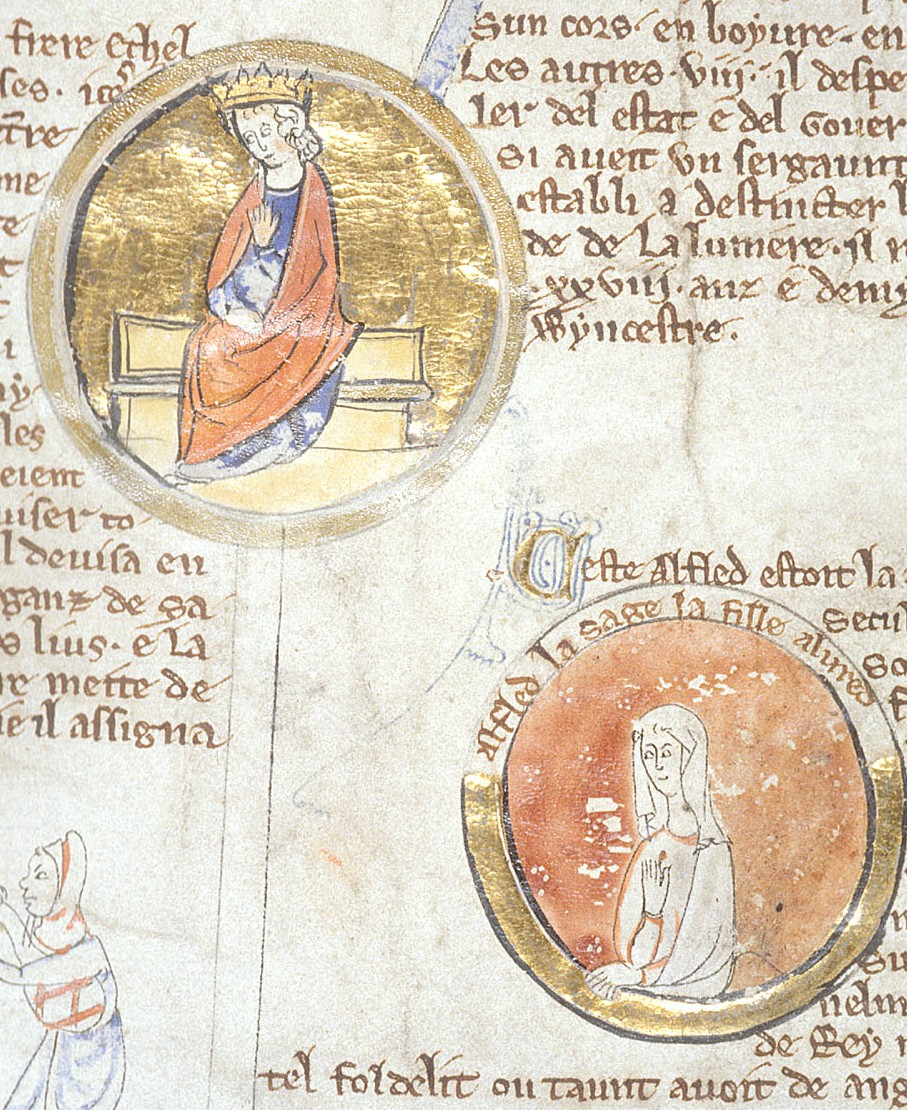 frere Ethel
ses.
tre
me
re
les
eient
uiser to
l deuisa en
ganz de sa
s lius. e la
re mette de
ie il assigna
Sun cors. en boyure. en
Les autres .viij. il despe
ler del estat e del Gouer
Si aueit vn sergaunt
establi a destincter l
de de La lumere. il r
.xxviij. anz e demy
Wyncestre.
Ceste Alfled estoit la
alfled la sage la fille alured
Secul
so
su
uelm
de Rey
tel fol delit ou taunt auoit de ang